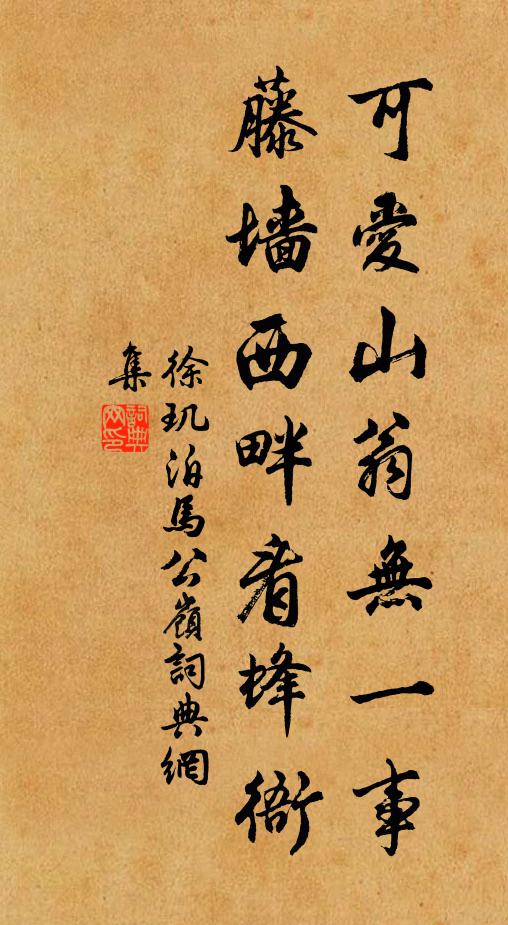 可愛山翁無一事
藤墻西畔看蜂衙
徐玑泊馬公嶺詞典網
集
詞典
网印